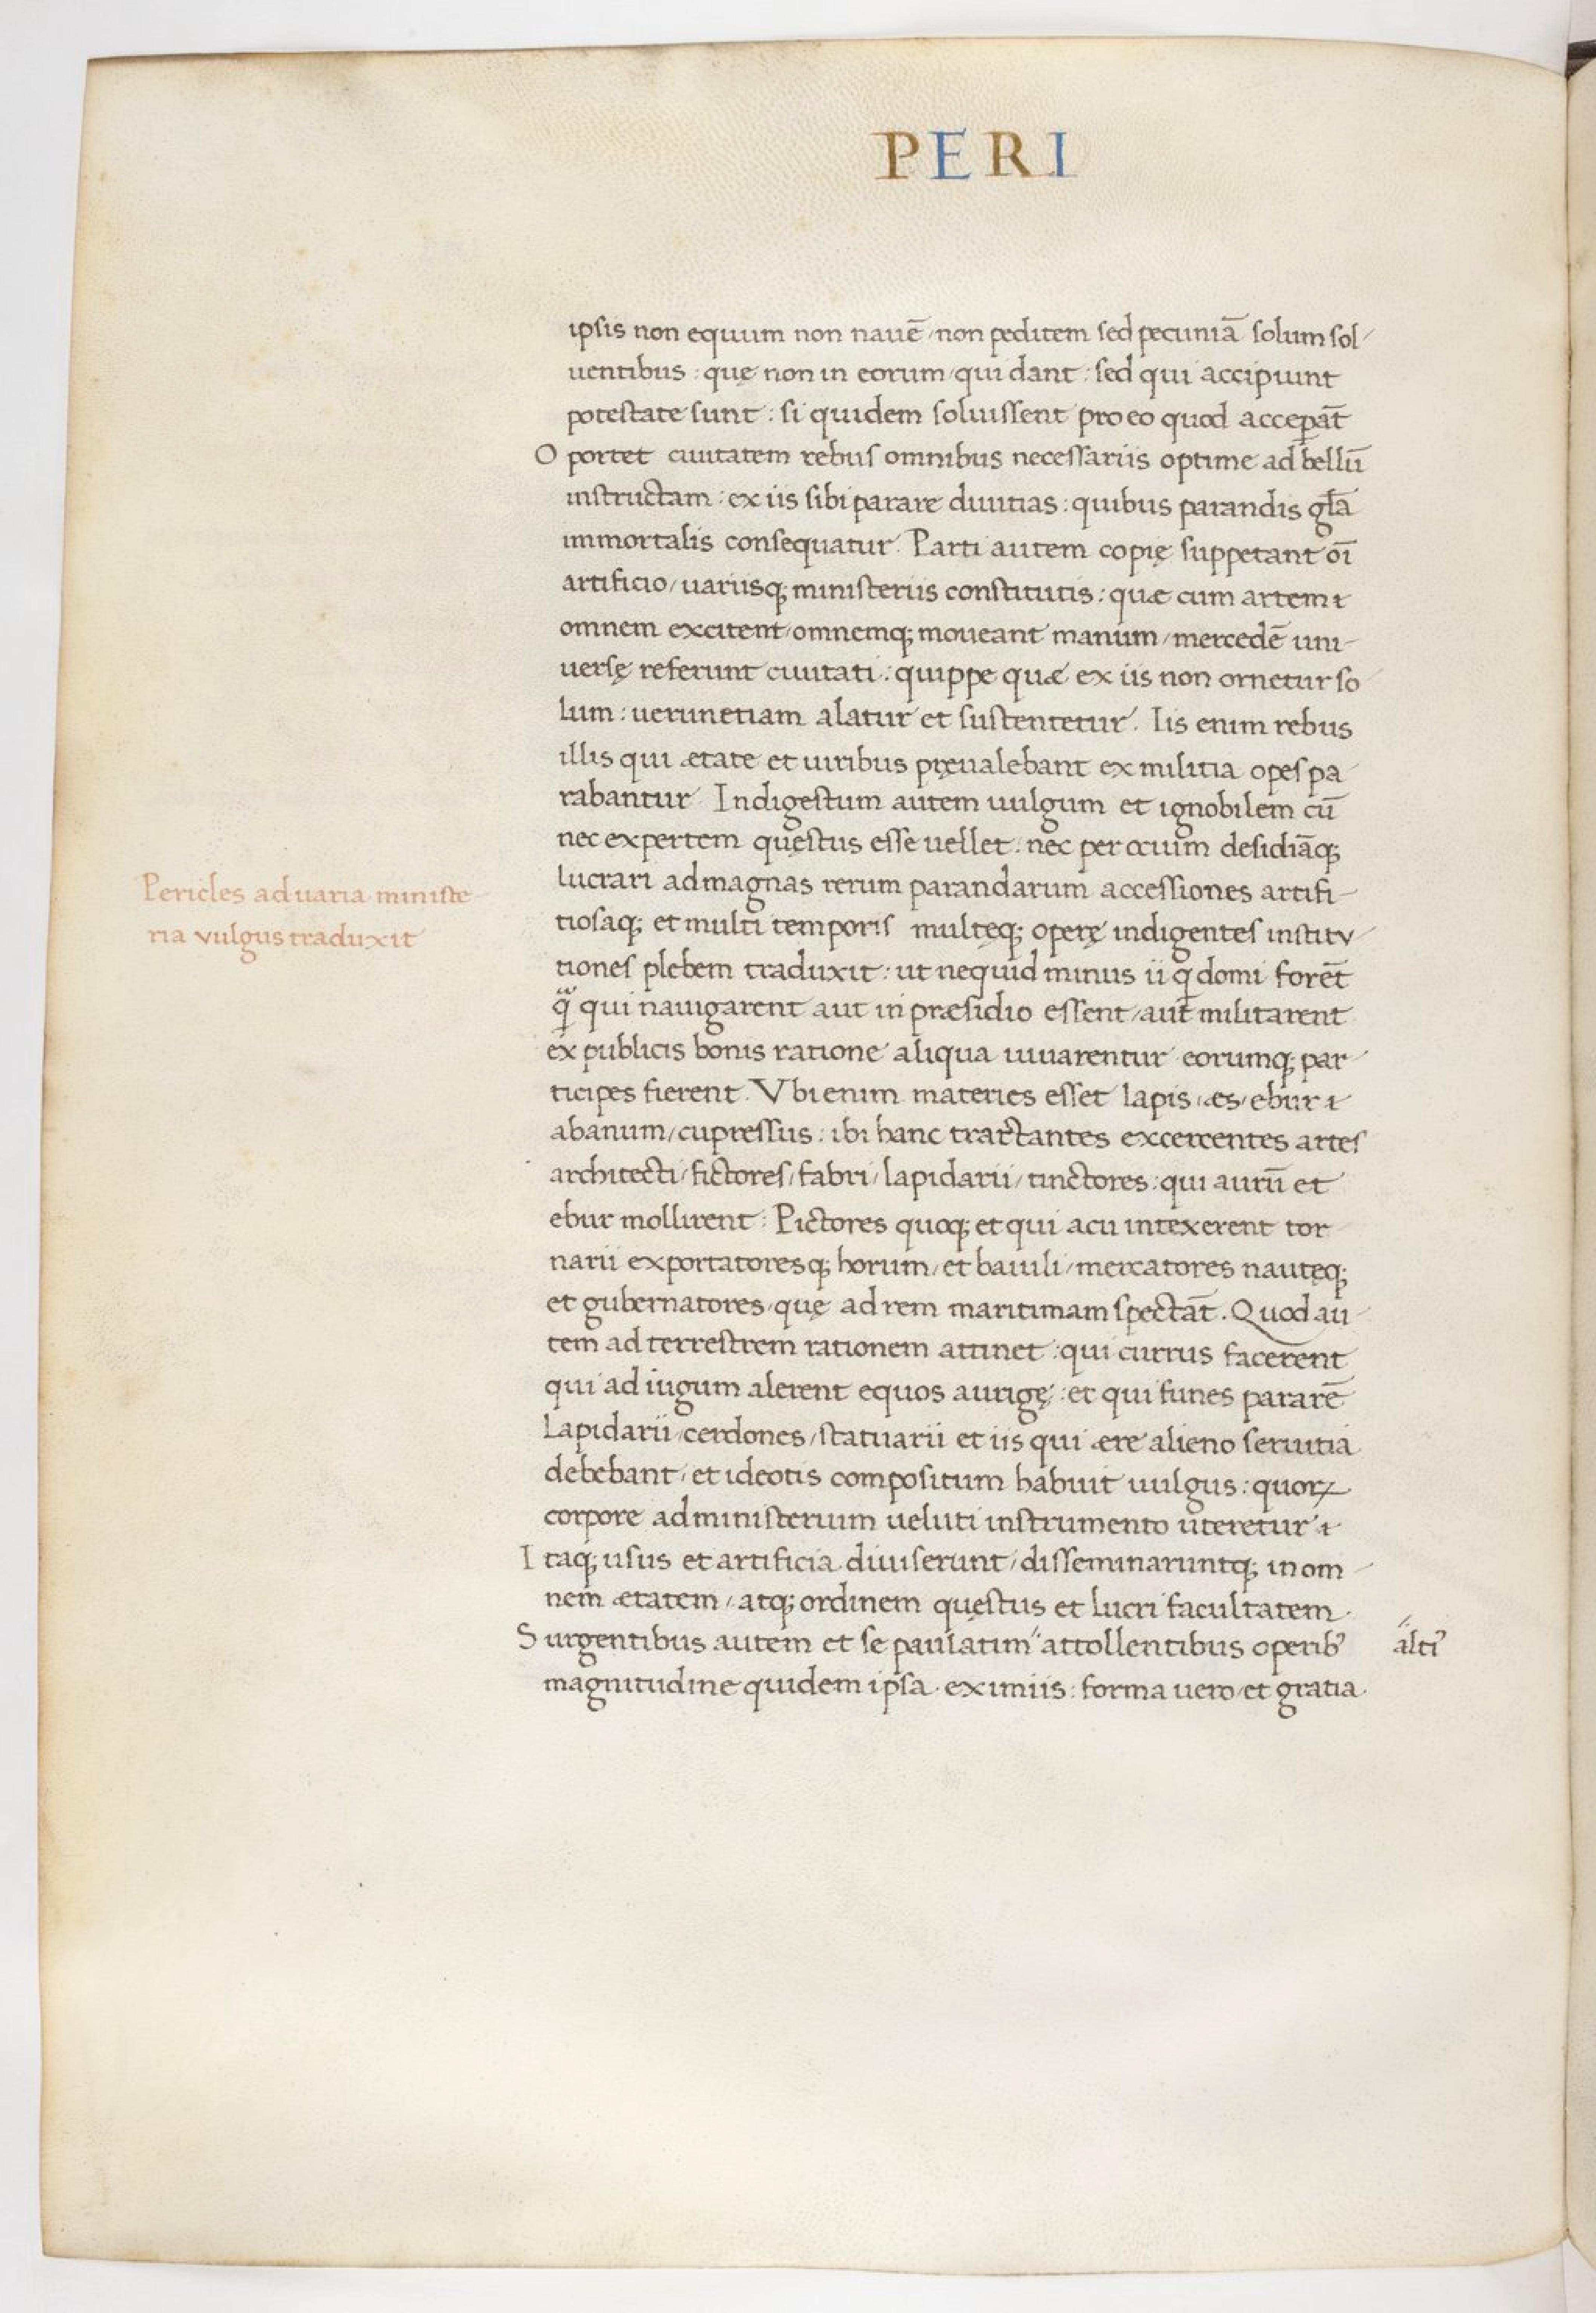 PERI
ipsis non equum non nauē / non peditem sed pecuniā solum sol-
uentibus : quę non in eorum / qui dant : sed qui accipiunt
potestate sunt : si quidem soluissent pro eo quod acceperāt
Oportet ciuitatem rebus omnibus necessariis optime ad bellū
instructam : ex iis sibi parare diuitias : quibus parandis gła
immortalis consequatur. Parti autem copię suppetant oī
artificio / uariisq; ministeriis constitutis : quæ cum artem
omnem excitent / omnemq; moueant manum / mercedē uni-
uersę referunt ciuitati : quippe quæ ex iis non ornetur so
lum : uerunetiam alatur et sustentetur. Iis enim rebus
illis qui ætate et uiribus pręualebant ex militia opes pa
rabantur Indigestum autem uulgum et ignobilem cū
nec expertem quęstus esse uellet : nec per ocium desidiāq;
lucrari ad magnas rerum parandarum accessiones artifi-
Pericles ad uaria ministe-
ria vulgus traduxit
tiosaq; et multi temporis multęq; operę indigentes institv-
tiones plebem traduxit : ut nequid minus ii q domi forēt
q̃ qui nauigarent aut in præsidio essent / aut militarent
ex publicis bonis ratione aliqua iuuarentur eorumq; par-
ticipes fierent. Vbi enim materies esset lapis / æs / ebur
abanum / cupressus : ibi hanc tractantes excercentes artes
architecti / fictores / fabri / lapidarii / tinctores : qui aurū et
ebur mollirent : Pictores quoq; et qui acu intexerent tor-
narii exportatoresq; horum / et baiuli / mercatores nautęq;
et gubernatores / quę ad rem maritimam spectāt. Quod au-
tem ad terrestrem rationem attinet : qui currus facerent
qui ad iugum alerent equos aurigę : et qui funes pararē
Lapidarii / cerdones / statuarii et iis qui ære alieno seruitia
debebant / et ideotis compositum habuit uulgus : quorꝝ
corpore ad ministerium ueluti instrumento uteretur
Itaq; usus et artificia diuiserunt / disseminaruntq; in om-
nem ætatem / atq; ordinem quęstus et lucri facultatem.
Surgentibus autem et se paulatim " attollentibus operib⁹
" alti⁹
magnitudine quidem ipsa eximiis : forma uero / et gratia